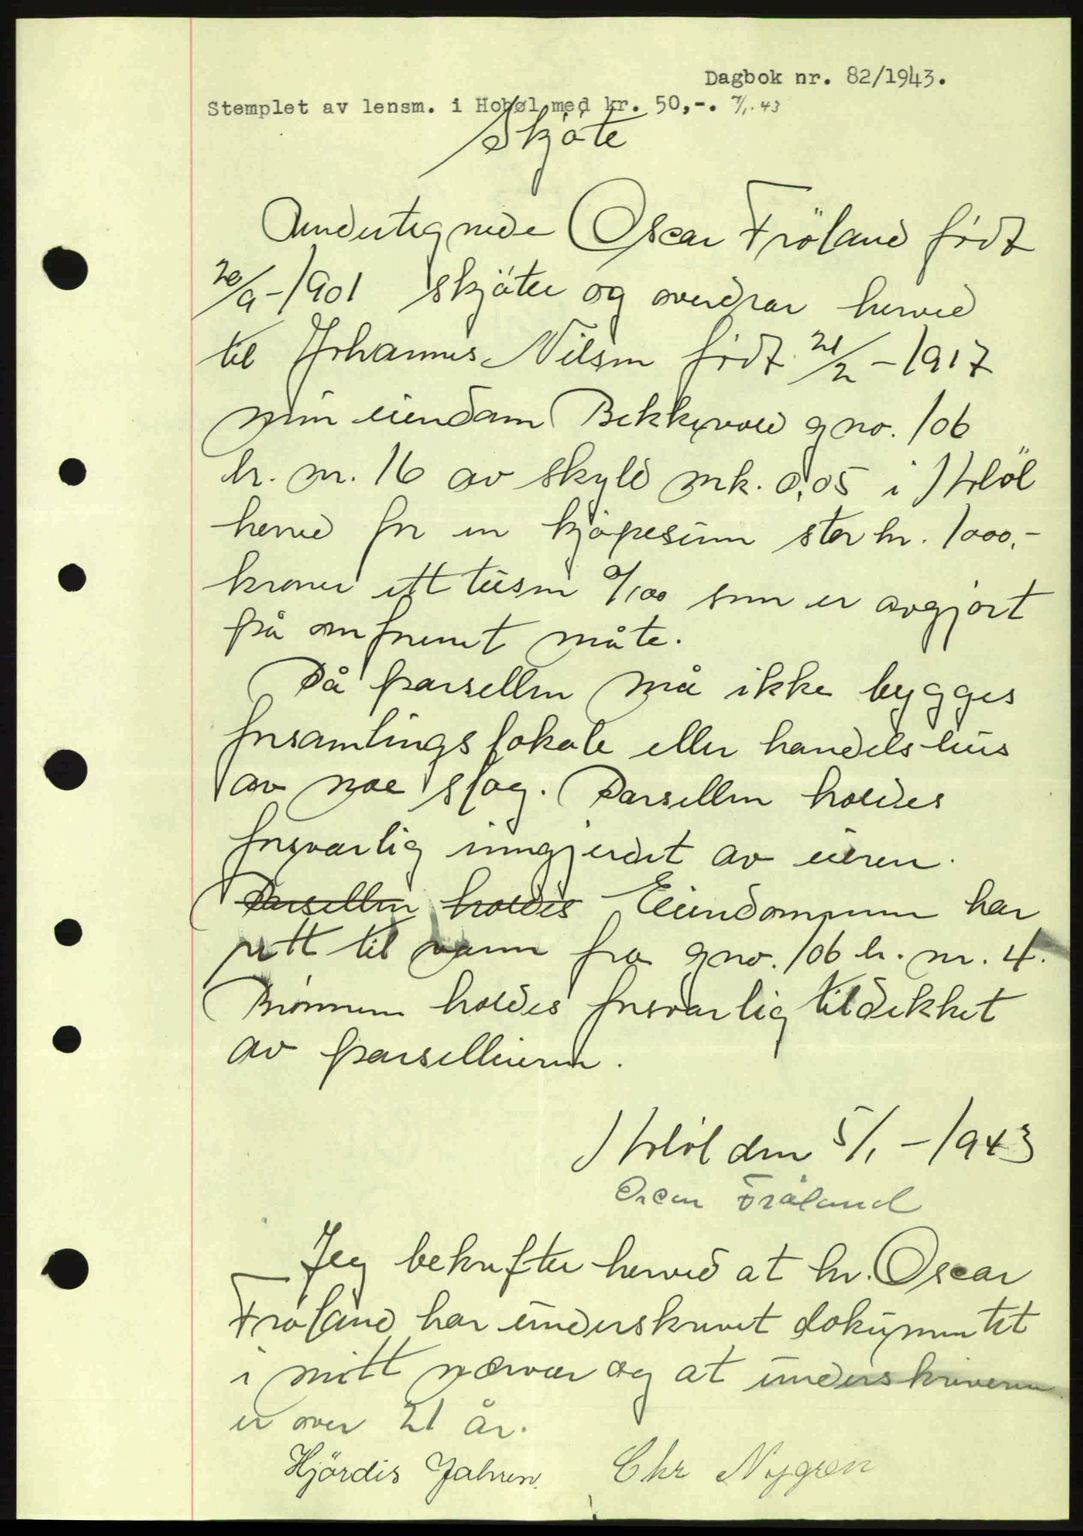 Dagbok nr. 82/1943.
Stemplet av lensm. i Hobøl med kr. 50,-. 7/1.43
Skjöte
Undertegnede Oscar Fröland född
20/9-1901 skjöter og overdrar herved
til Johannes Nilsen född 21/2-1917
min eiendom Bekkevold gno. 106
br. nr. 16 av skyld mk. 0,05 i Hoböl
herred for en kjöpesum stor kr. 1000,-
kroner ett tusen 0/100 som er avgjort
på omforenet måte.
På parsellen må ikke bygges
forsamlingslokale eller handelshus
av noe slag. Parsellen holdes
forsvarlig inngjerdet av eieren.
Parsellen holdes Eiendommen har
rett til vann fra gno. 106 br. nr. 4.
Brönnen holdes forsvarlig tildekket
av parselleieren.
Hoböl den 5/1-1943
Oscar Fröland
Jeg bekrefter herved at hr. Oscar
Fröland har underskrevet dokumentet
i mitt nærvær og at underskriveren
er over 21 år.
Hjördis Jahren. Chr Nygren